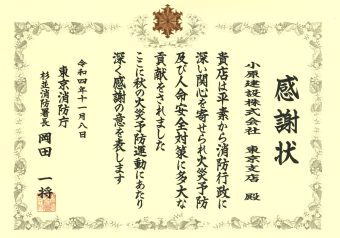 感謝状
小原建設株式会社 東京支店 殿
貴店は平素から消防行政に
深い関心を寄せられ火災予防
及び人命安全対策に多大な
貢献をされました
ここに秋の火災予防運動にあたり
深く感謝の意を表します
令和四年十一月八日
東京消防庁
杉並消防署長 岡田 一将